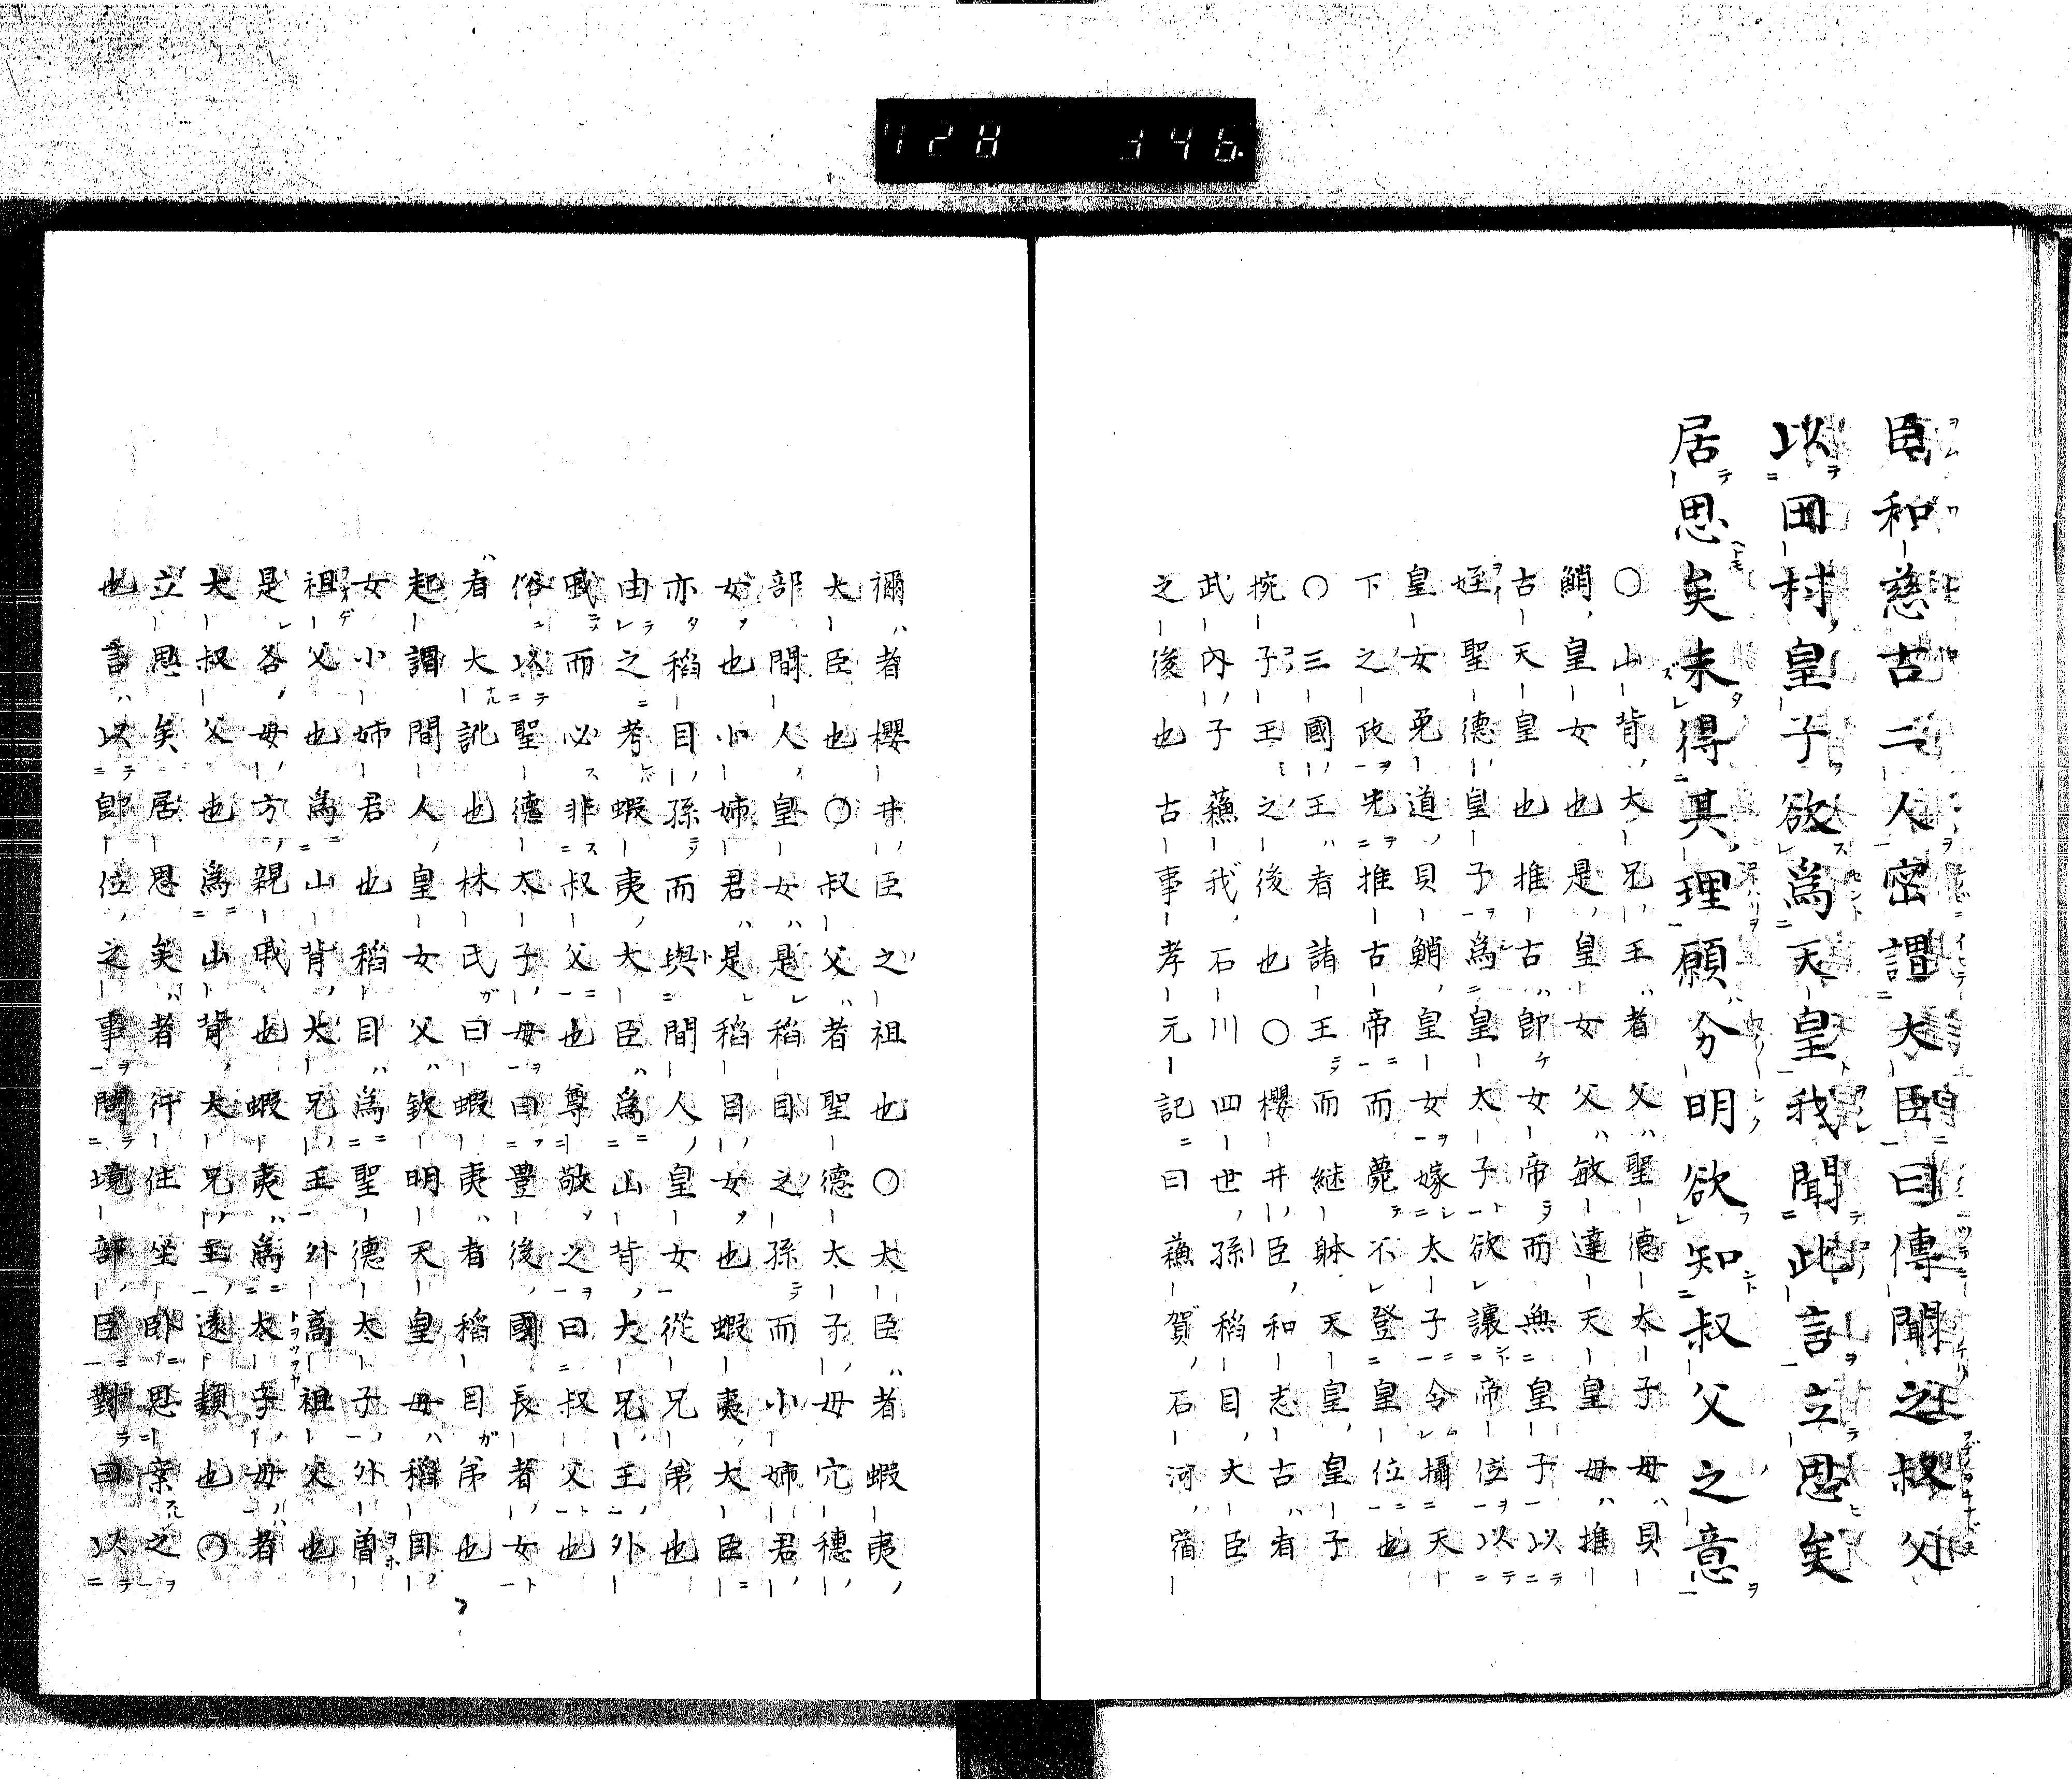 728 346.
臣和慈古二人密謂大臣曰傳聞之叔父
以田村皇子欲爲天皇我聞此言立思矣
居思矣未得其理願分明欲知叔父之意
○山背大兄王者父聖德太子母貝
鮹皇女也是皇女父敏達天皇母推
古天皇也推古卽女帝而無皇子以
姪聖德皇子爲皇太子欲讓帝位以
皇女菟道貝鮹皇女嫁太子令攝天
下之政先推古帝而薨不登皇位也
○三國王者諸王而継躰天皇皇子
椀子王之後也○櫻井臣和志古者
武內子蘓我石川四世孫稻目大臣
之後也古事孝元記曰蘓賀石河宿
禰者櫻井臣之祖也○大臣者蝦夷
大臣也○叔父者聖德太子母穴穗
部間人皇女是稻目之孫而小姉君
女也小姉君是稻目女也蝦夷大臣
亦稻目孫而與間人皇女從兄弟也
由之考蝦夷大臣爲山背大兄王外
戚而必非叔父也尊敬之曰叔父也
俗以聖德太子母曰豊後國長者女
者大訛也林氏曰蝦夷者稻目弟也
起謂間人皇女父欽明天皇母稻目
女小姉君也稻目爲聖德太子外曽
祖父也爲山背大兄王外高祖父也
是各母方親戚也蝦夷爲太子母者
大叔父也爲山背大兄王遠類也○
立思矣居思矣者行住坐臥思棄之
也言以卽位之事問境部臣對曰以